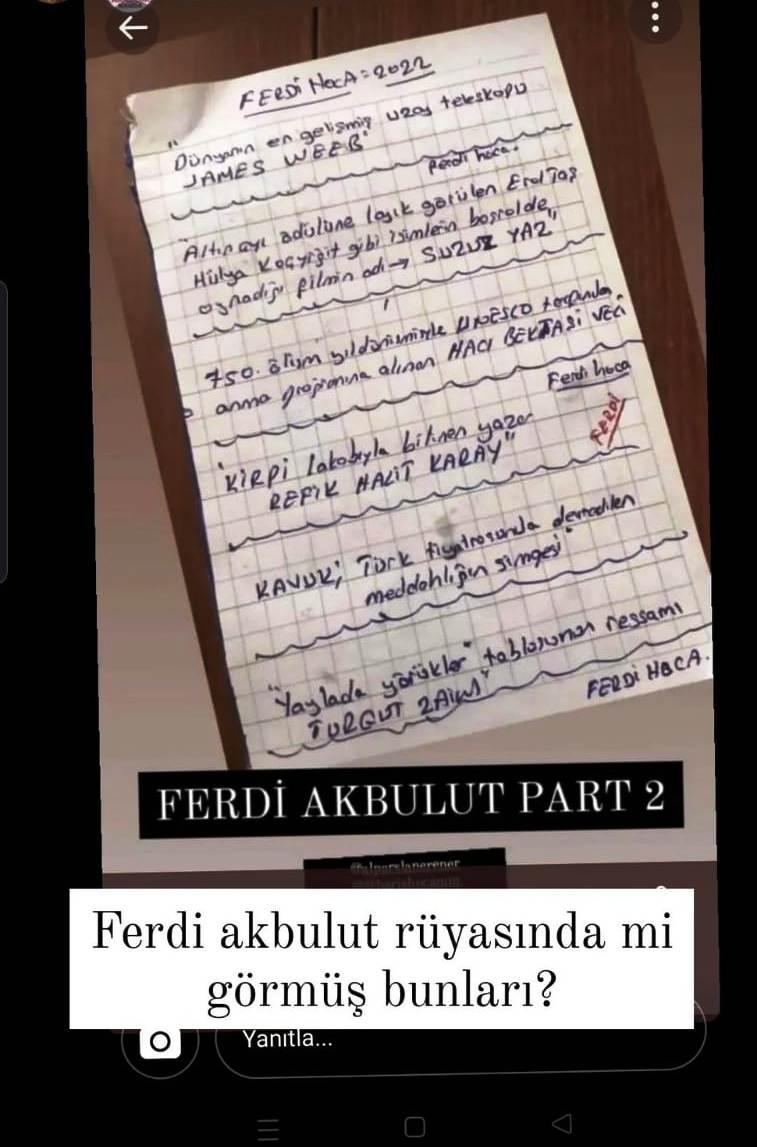 FERDİ HOCA=2022
"Dünyanın en gelişmiş uzay teleskopu
JAMES WEEB"
Ferdi hoca.
"Altın ayı ödülüne layık görülen Erol Taş
Hülya Koçyiğit gibi isimlerin başrolde
oynadığı filmin adı → SUZUZ YAZ"
750. ölüm yıldönümünde UNESCO tarafından
anma programına alınan HACI BEKTAŞİ VELİ
Ferdi hoca
FERDİ
"KİRPİ lakabıyla bilinen yazar
REFİK HALİT KARAY"
KAVUK; Türk tiyatrosunda devredilen
meddahlığın simgesi"
"Yaylada yörükler" tablosunun ressamı
TURGUT ZAİM"
FERDİ HOCA.
FERDİ AKBULUT PART 2
@alparslanerener
Ferdi akbulut rüyasında mi
görmüş bunları?
Yanıtla...